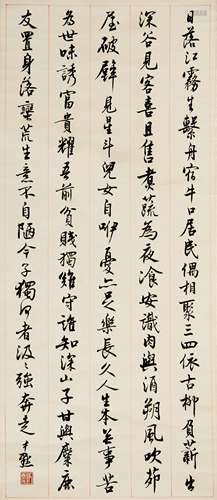 日落江霧生繫舟宿牛口居民偶相聚三四依古柳負薪出
深谷見客喜且售煮蔬為夜飡安識肉與酒朔風吹茆
屋破壁見星斗兒女自咿嚘亦足樂長久人生本無事苦
為世味誘富貴耀吾前貧賤獨難守誰知深山子甘與麋鹿
友置身落蠻荒生意不自陋今予獨何者汲々強奔走 尹默